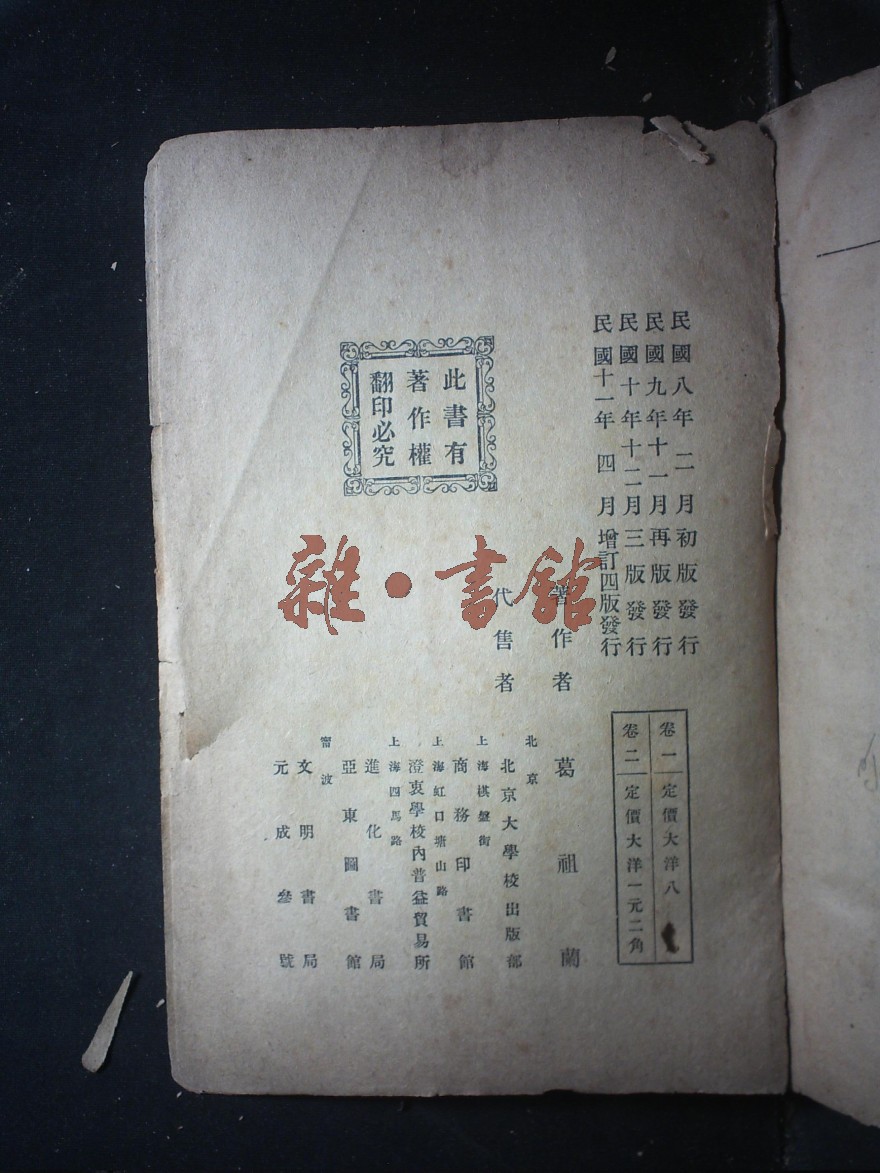 民國八年二月初版發行
民國九年十一月再版發行
民國十年十二月三版發行
民國十一年四月增訂四版發行
卷一 定價大洋八
卷二 定價大洋一元二角
著作者 葛祖蘭
代售者
北京 北京大學校出版部
上海棋盤街 商務印書館
上海虹口塘山路 澄衷學校內普益貿易所
上海四馬路 進化書局
亞東圖書館
甯波 文明書局
元成叄號
此書有
著作權
翻印必究
雜·書館